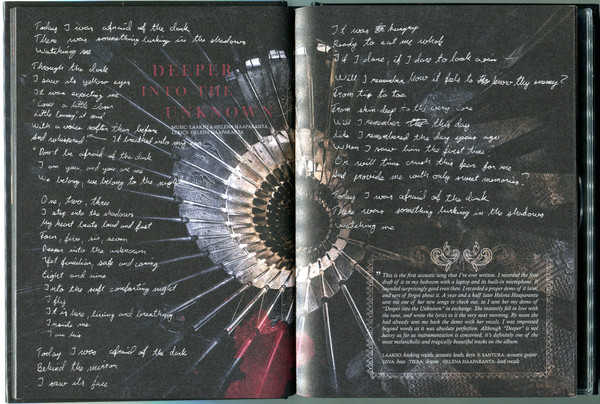 Today I was afraid of the dark
There was something lurking in the shadows
Watching me
Through the dark
I saw its yellow eyes
It was expecting me
"Come a little closer
Little bunny, it said
With a voice softer than before
And whispered... It breathed into my
"Don't be afraid of the dark
I am you and you are me
We belong, we belong to the night"
One, two, three
I step into the shadows
My heart beats loud and fast
Four, five, six, seven
Deeper into the unknown
Yet familiar, safe and caring
Eight and nine
Into the soft comforting night
I fly
It is here living and breathing
Inside me
I am this
Today I was afraid of the dark
Behind the mirror
I saw its face
DEEPER
INTO THE
UNKNOWN
MUSIC: LAAKSO & HELENA HAAPARANTA
LYRICS: HELENA HAAPARANTA
It was hungry
Ready to eat me whole
If I dare, if I dare to look again
Will I remember how it feels to know thy enemy?
From tip to toe
From skin-deep to thy very core
Will I remember this day
Like I remembered the day years ago
When I saw him the first time
Or will time crush this fear for me
And provide me with only sweet memories?
Today I was afraid of the dark
There was something lurking in the shadows
Watching me
"This is the first acoustic song that I've ever written. I recorded the first
draft of it in my bedroom with a laptop and its built-in microphone. It
sounded surprisingly good even then. I recorded a proper demo of it later
and sort of forgot about it. A year and a half later Helena Haaparanta
sent me one of her new songs to check out, so I sent her my demo of
"Deeper into the Unknown" in exchange. She instantly fell in love with
the tune, and wrote the lyrics to it the very next morning. By noon she
had already sent me back the demo with her vocals. I was impressed
beyond words as it was absolute perfection. Although "Deeper" is not
heavy as far as instrumentation is concerned, it's definitely one of the
most melancholic and tragically beautiful tracks on the album.
LAAKSO: backing vocals, acoustic leads, keys V. SANTURA: acoustic guitar
bass TIERA: drums HELENA HAAPARANTA: lead vocals